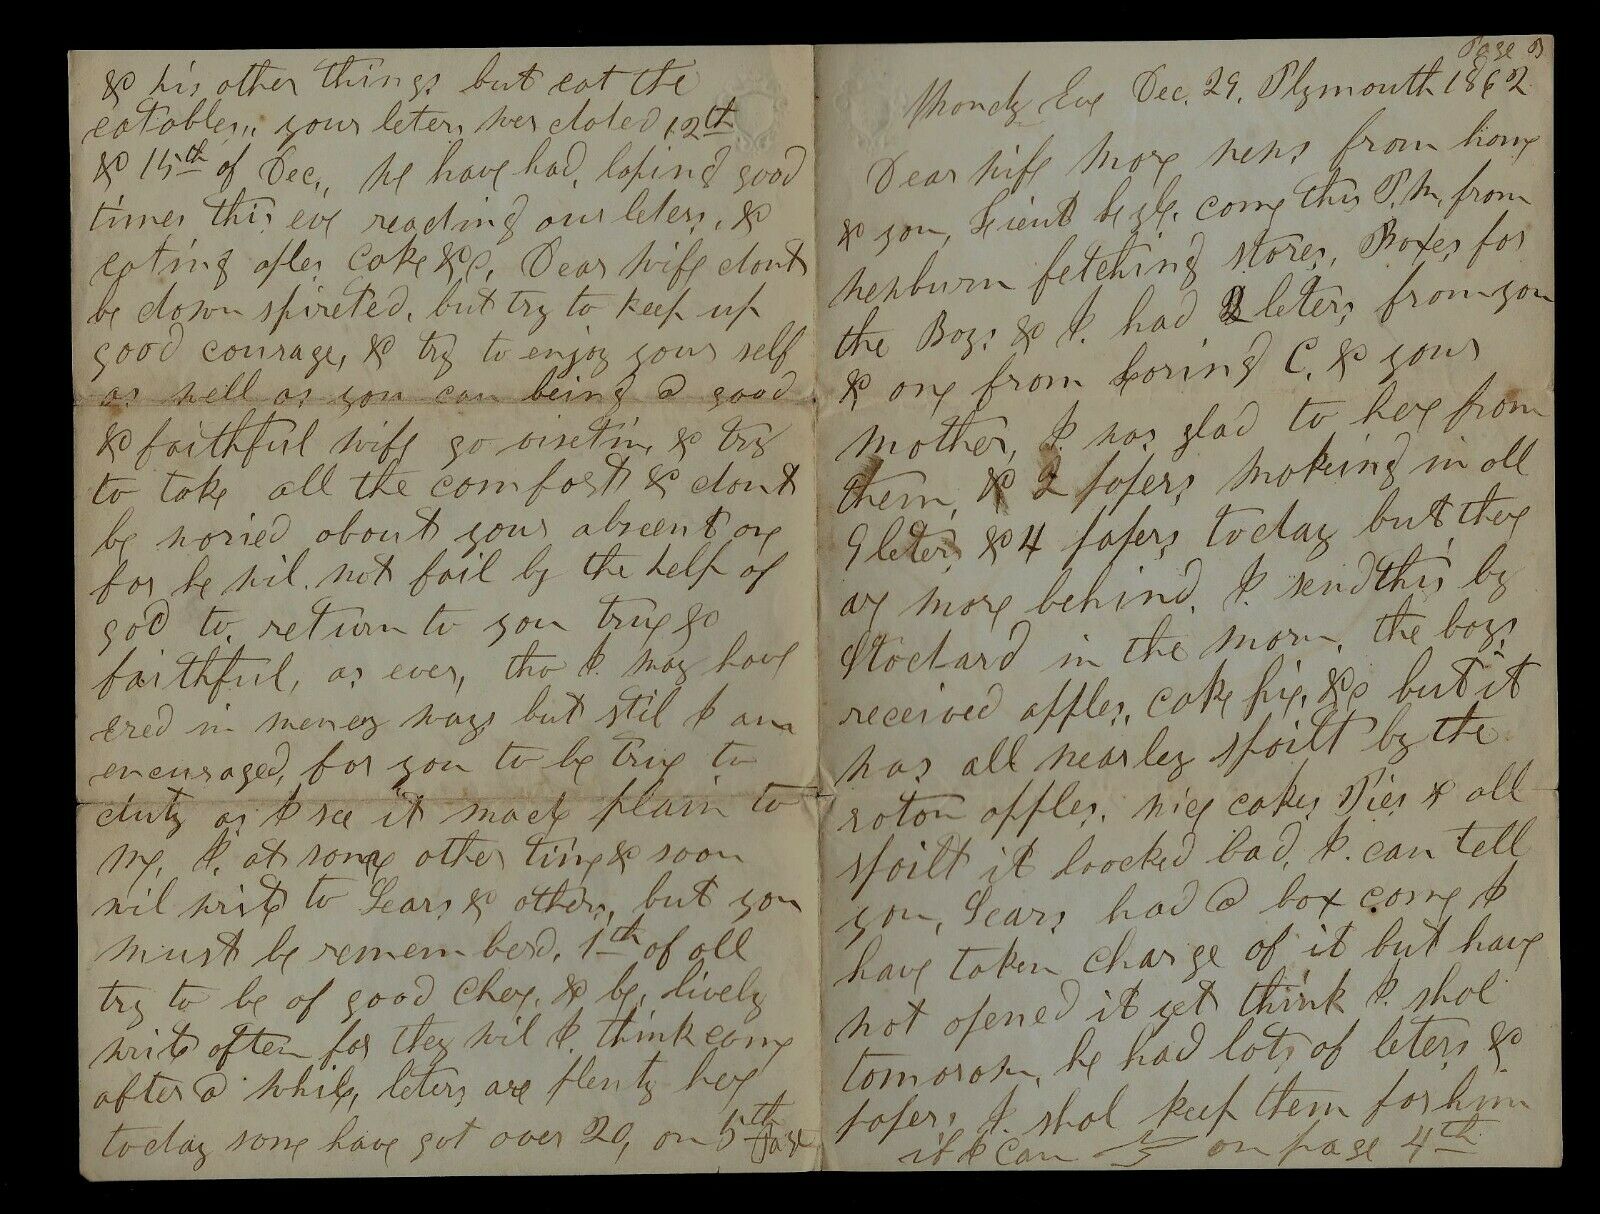 Page 3
Mondy Eve Dec. 29, Plymouth 1862
Dear wife more news from home
& you, Lieut come this P.M, from
newburn fetching stores, Boxes for
the Boys & I. had 2 leters from you
& one from Loring C. & your
mother, I. was glad to here from
them, & 2 papers making in all
9 leters & 4 papers today but there
are more behind. I. send this by
Stodard in the morn, the boys
received apples, cake pie, &c but it
has all nearley spoilt by the
roton apples. nice cakes Pies & all
spoilt it loocked bad, I. can tell
you, Sears had a box come I
have taken charge of it but have
not opened it yet think I. shal
tomorow, he had lots of leters &
papers I. shal keep them for him
if I can on page 4th
& his other things but eat the
eatables,, your leters wer dated 12th
& 15th of Dec,, we have had, good
times this eve reading our leters, &
eating aples cake &c, Dear wife dont
be down spireted, but try to keep up
good courage, & try to enjoy your self
as well as you can being a good
& faithful wife go viseting & try
to take all the comfort & dont
be woried about your abcent one
for he wil. not fail by the help of
god to, return to you true &
faithful, as ever, tho I. may have
ered in meney ways but stil I am
encuraged, for you to be true to
duty as I see it made plain to
me, I. at some other time & soon
wil write to Sears & others, but you
must be rememberd, 1th of all
try to be of good chere, & be, lively
write often for they wil I. think come
after a while, leters are plenty here
today some have got over 20, on 5th page